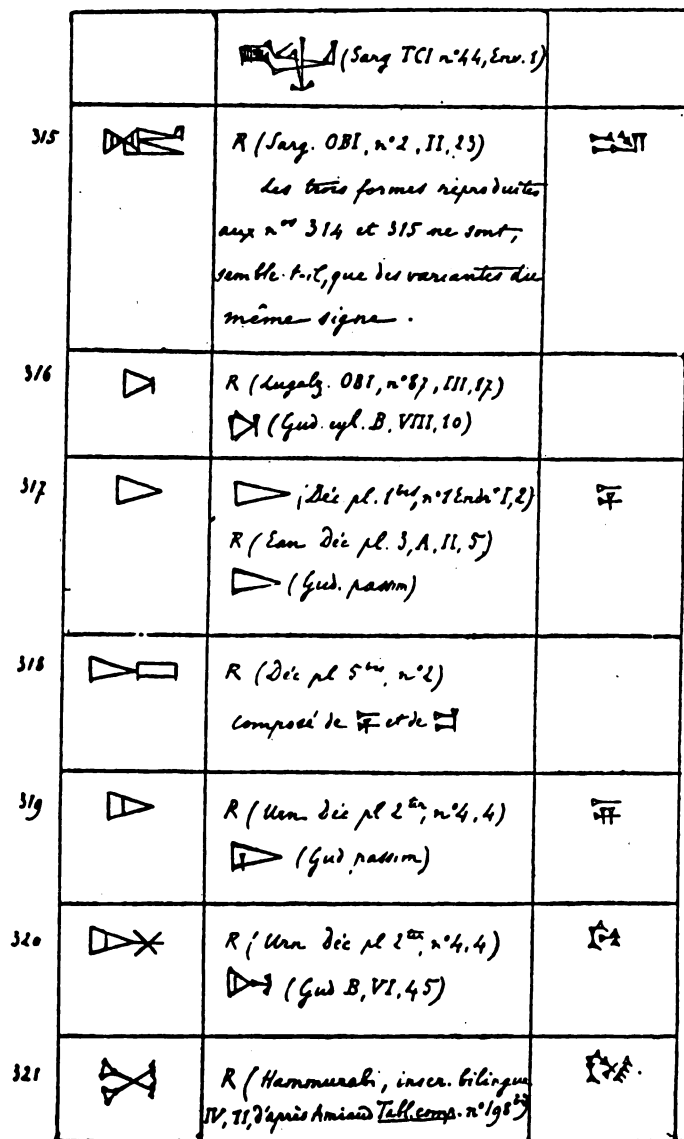 (Sarg TCI n°44, Env. 1)
315 R (Sarg. OBI, n°2, II, 23)
Les trois formes reproduites
aux nos 314 et 315 ne sont,
semble-t-il, que des variantes du
même signe.
316 R (Lugalz. OBI, n°87, III, 17)
(Gud. cyl. B, VIII, 10)
317 (Déc pl. 1bis, n°1 Endr° I, 2)
R (Ean Déc pl. 3, A, II, 5)
(Gud. passim)
318 R (Déc pl 5bis, n°2)
composé de et de
319 R (Urn Déc pl 2ter, n°4, 4)
(Gud passim)
320 R (Urn Déc pl 2ter, n°4, 4)
(Gud B, VI, 45)
321 R (Hammurabi, inscr. bilingue
IV, 11, d'après Amiaud Tabl. comp. n°198bis)